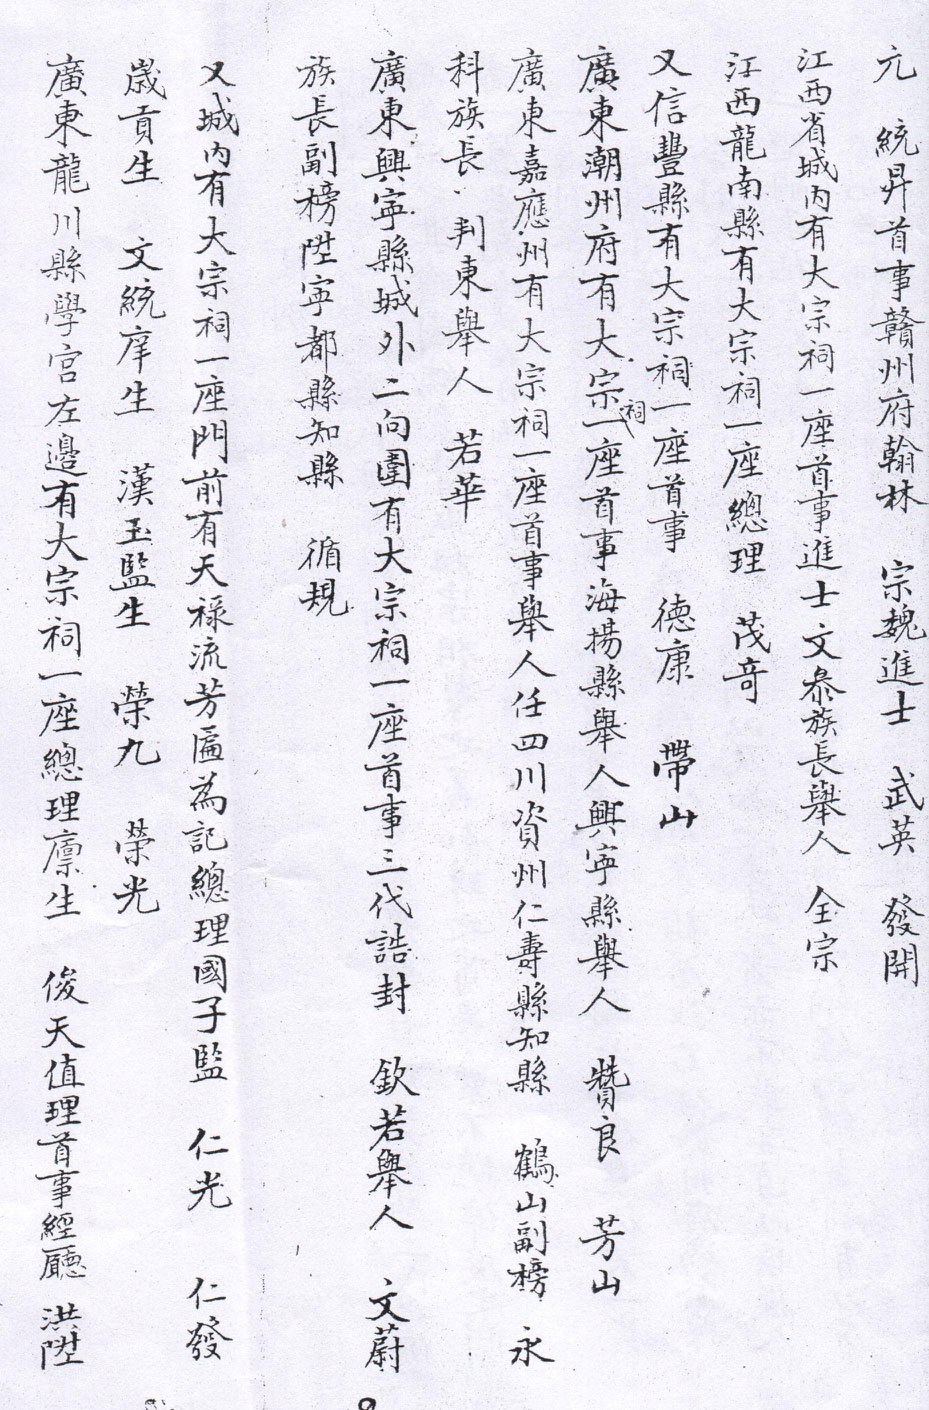 元　統昇首事贛州府翰林　宗魏進士　武英　發開
江西省城內有大宗祠一座首事進士文彔族長舉人　全宗
江西龍南縣有大宗祠一座總理　茂竒
又信豐縣有大宗祠一座首事　德康　帶山
廣東潮州府有大宗祠一座首事海揚縣舉人興寧縣舉人　贊良　芳山
廣東嘉應州有大宗祠一座首事舉人任四川資州仁壽縣知縣　鶴山副榜　永
科族長　判東舉人　若華
廣東興寧縣城外二向圍有大宗祠一座首事三代誥封　欽若舉人　文蔚
族長副榜陞寧都縣知縣　循規
又城內有大宗祠一座門前有天祿流芳匾為記總理國子監　仁光　仁發
歲貢生　文統庠生　漢玉監生　榮九　榮光
廣東龍川縣學宮左邊有大宗祠一座總理廩生　俊天值理首事經廳　洪陞